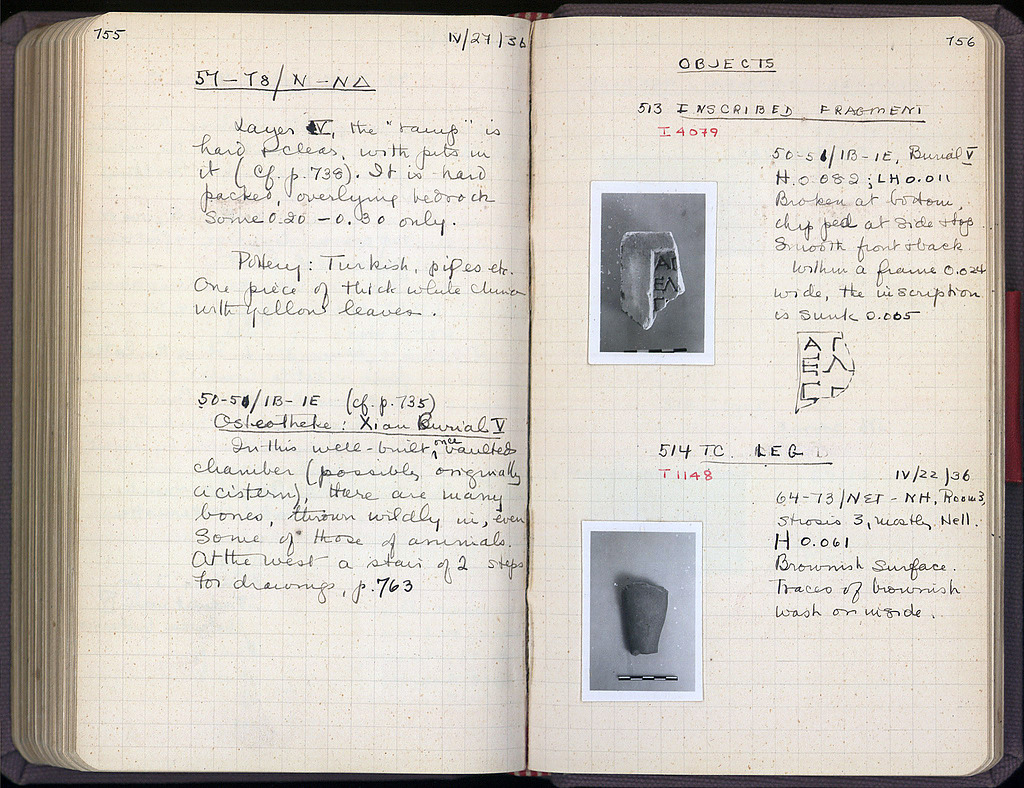 755
IV/27/36
57-78/N-NΔ
Layer IV, the "ramp" is
hard & clear, with pits in
it (cf. p. 738). It is hard
packed, overlying bedrock
some 0.20 - 0.30 only.
Pottery: Turkish, pipes etc.
One piece of thick white china
with yellow leaves.
50-51/IB-IE (cf. p. 735)
Osteotheke: Xian Burial V
In this well-built, once vaulted
chamber (possibly originally
a cistern), there are many
bones, thrown wildly in, even
some of those of animals.
At the west a stair of 2 steps
for drawings, p. 763
756
OBJECTS
513 INSCRIBED FRAGMENT
I 4079
50-51/IB-IE, Burial V
H. 0.082; LH 0.011
Broken at bottom,
chipped at side & top
Smooth front & back
Within a frame 0.024
wide, the inscription
is sunk 0.005
ΑΓ
ΕΛ
514 TC. LEG
T 1148
IV/22/36
64-73/NET-NH, Room 3,
strosis 3, mostly Hell.
H 0.061
Brownish surface.
Traces of brownish
wash on inside.